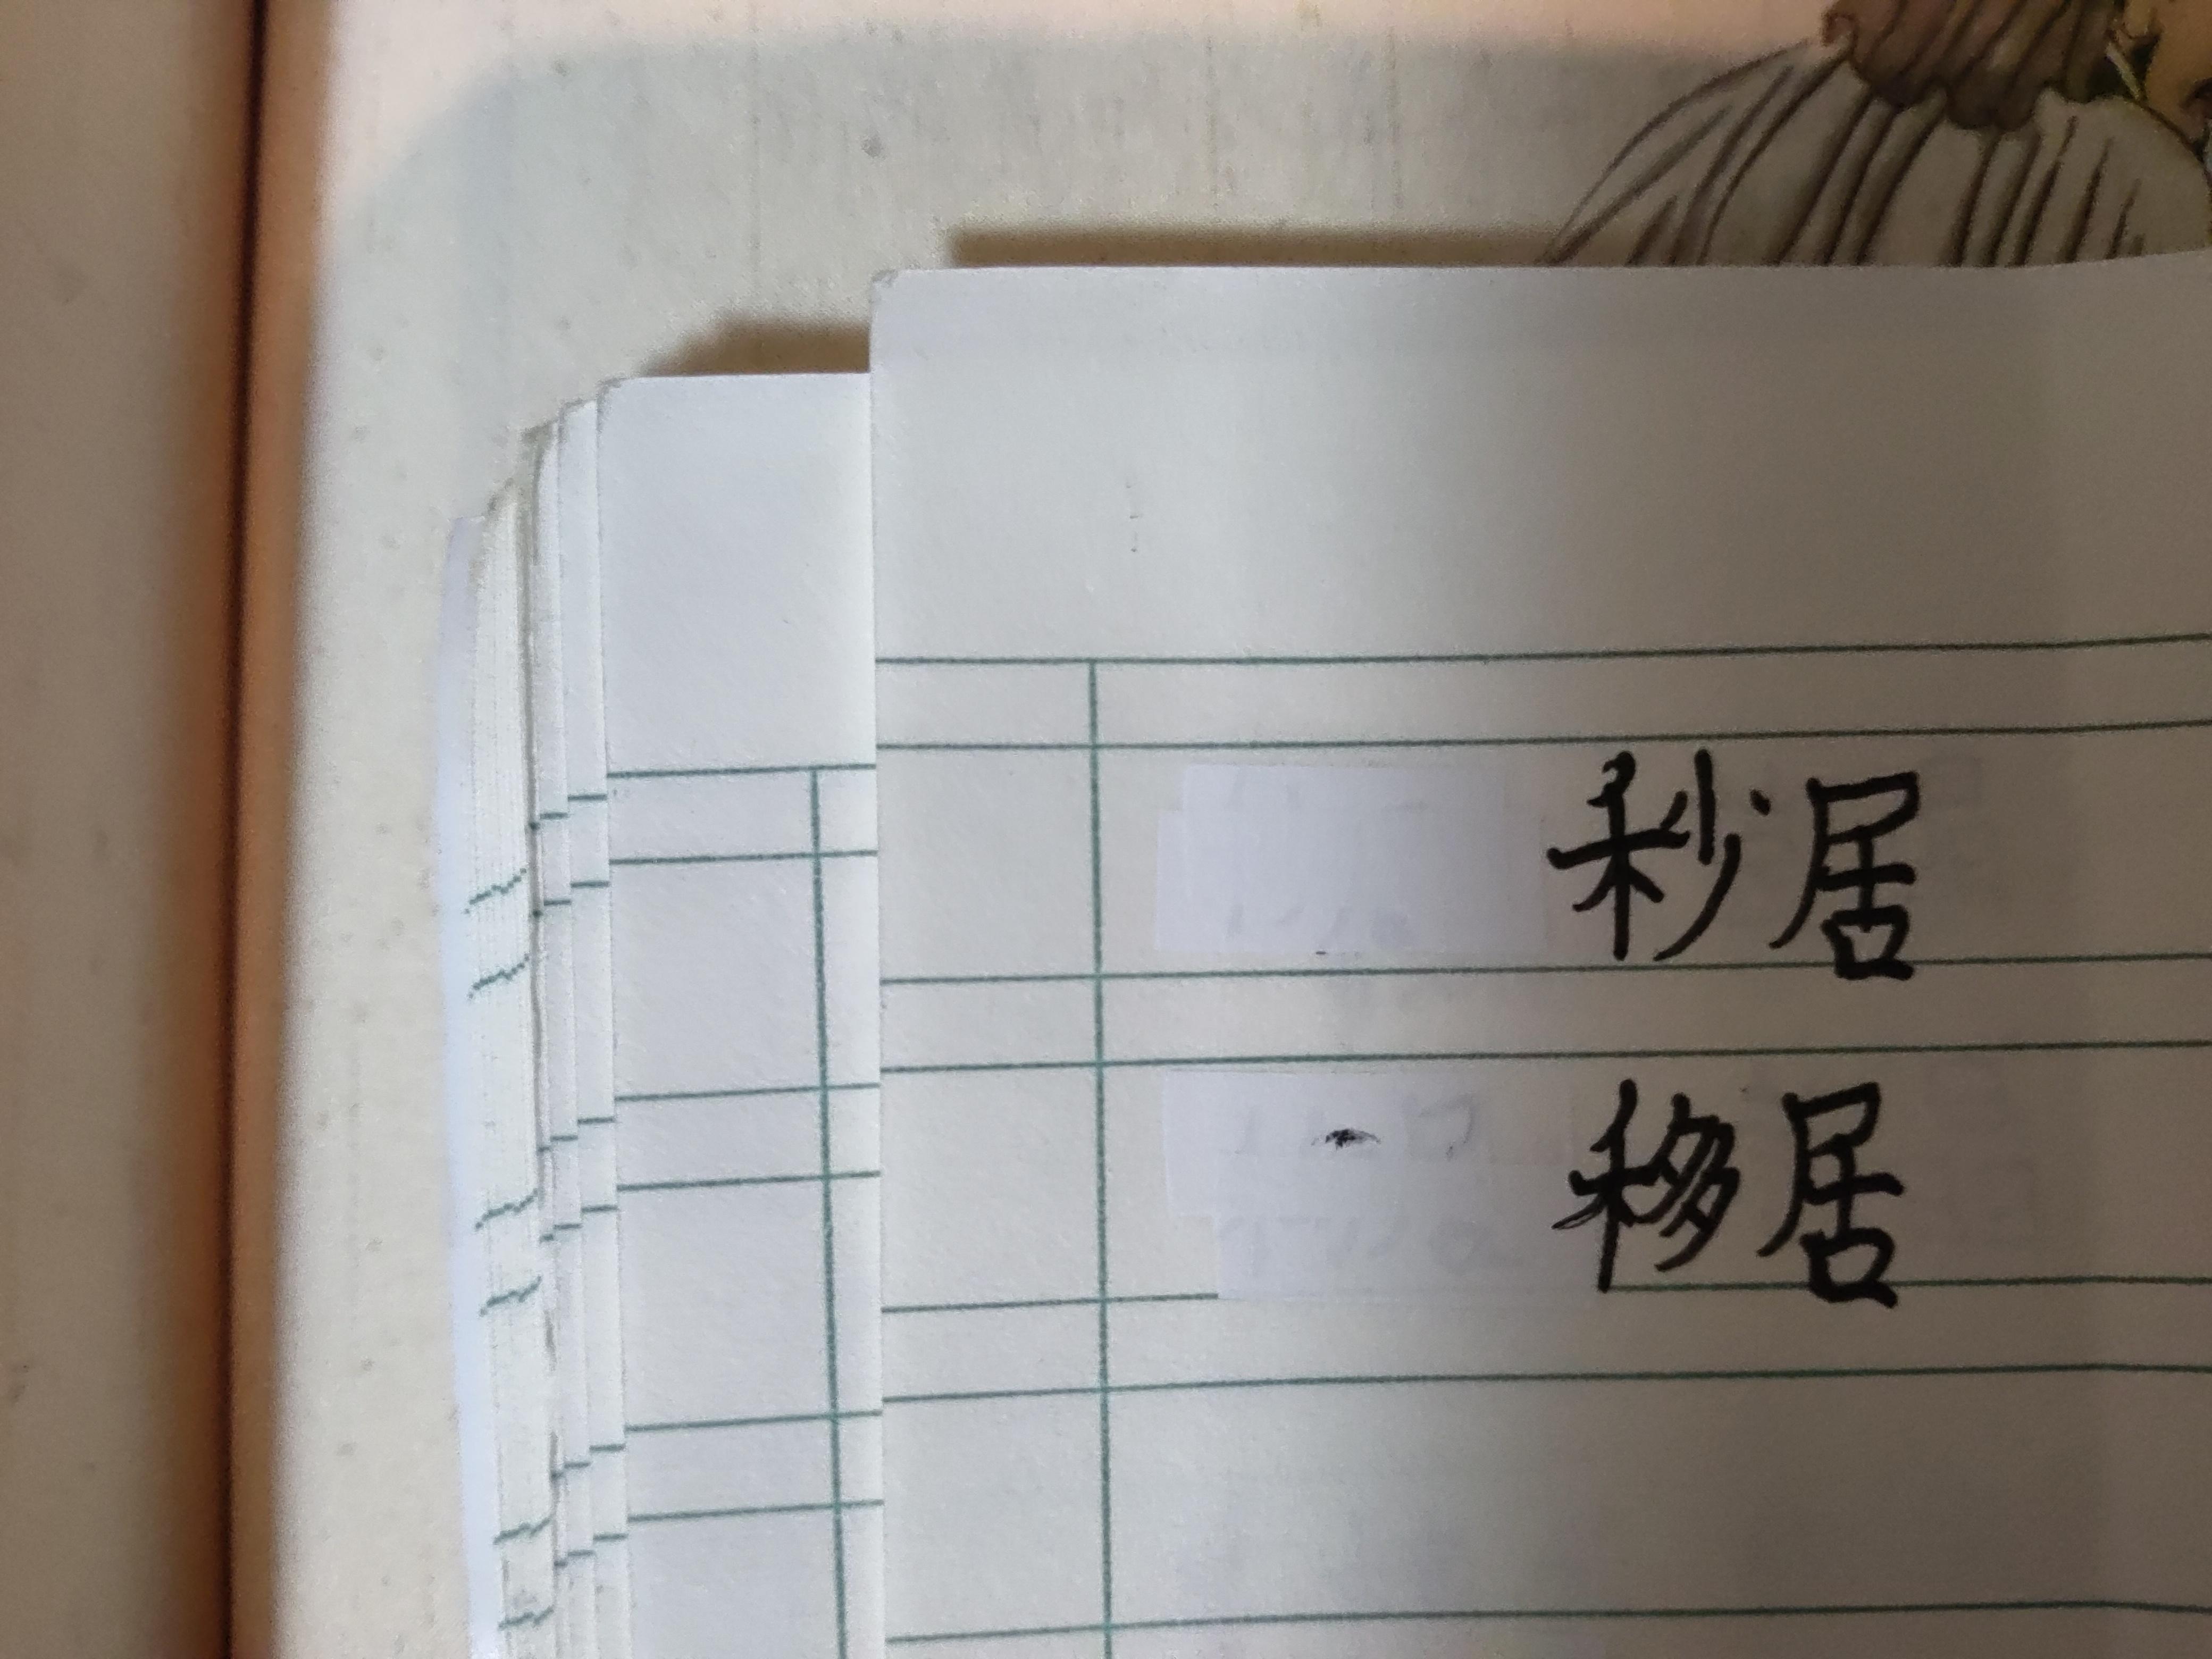 秒居
移居